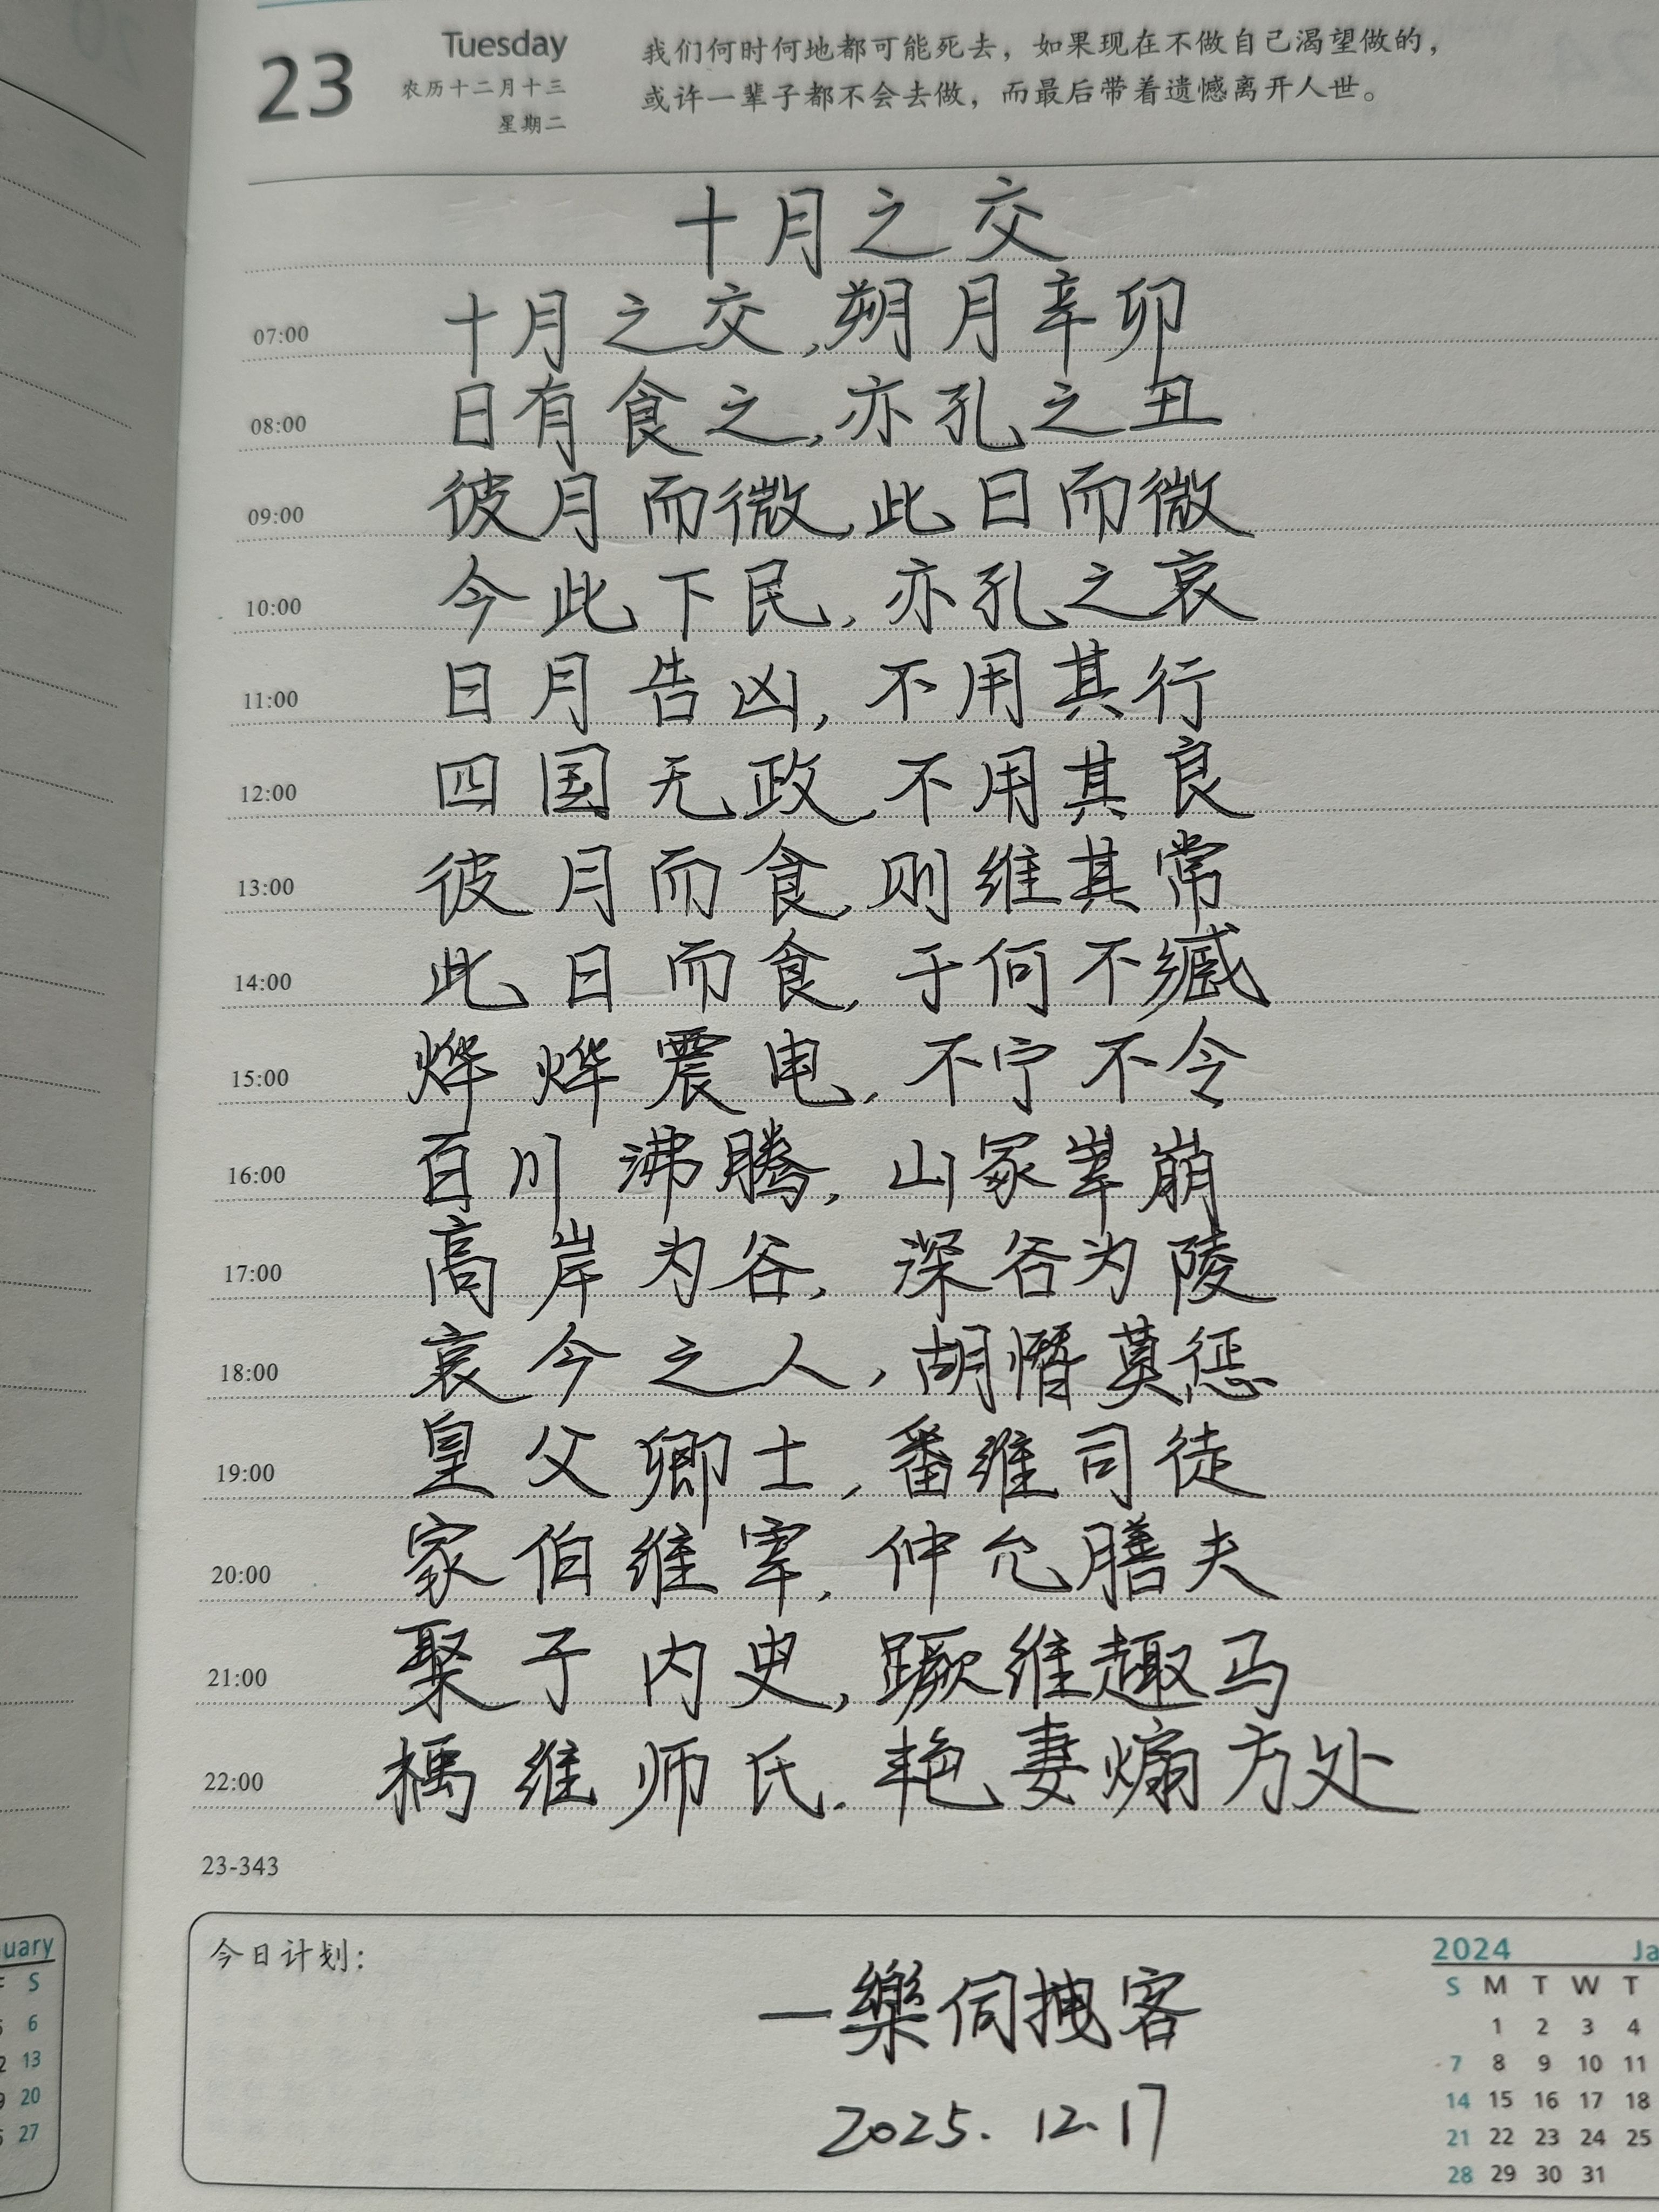 23
Tuesday
农历十二月十三
星期二
我们何时何地都可能死去，如果现在不做自己渴望做的，
或许一辈子都不会去做，而最后带着遗憾离开人世。
十月之交
07:00 十月之交,朔月辛卯
08:00 日有食之,亦孔之丑
09:00 彼月而微,此日而微
10:00 今此下民,亦孔之哀
11:00 日月告凶,不用其行
12:00 四国无政,不用其良
13:00 彼月而食,则维其常
14:00 此日而食,于何不臧
15:00 烨烨震电,不宁不令
16:00 百川沸腾,山冢崒崩
17:00 高岸为谷,深谷为陵
18:00 哀今之人,胡憯莫惩
19:00 皇父卿士,番维司徒
20:00 家伯维宰,仲允膳夫
21:00 聚子内史,蹶维趣马
22:00 楀维师氏.艳妻煽方处
23-343
今日计划：
一樂伺拽客
2025.12.17
uary
F S
5 6
2 13
9 20
6 27
2024 Ja
S M T W T
1 2 3 4
7 8 9 10 11
14 15 16 17 18
21 22 23 24 25
28 29 30 31